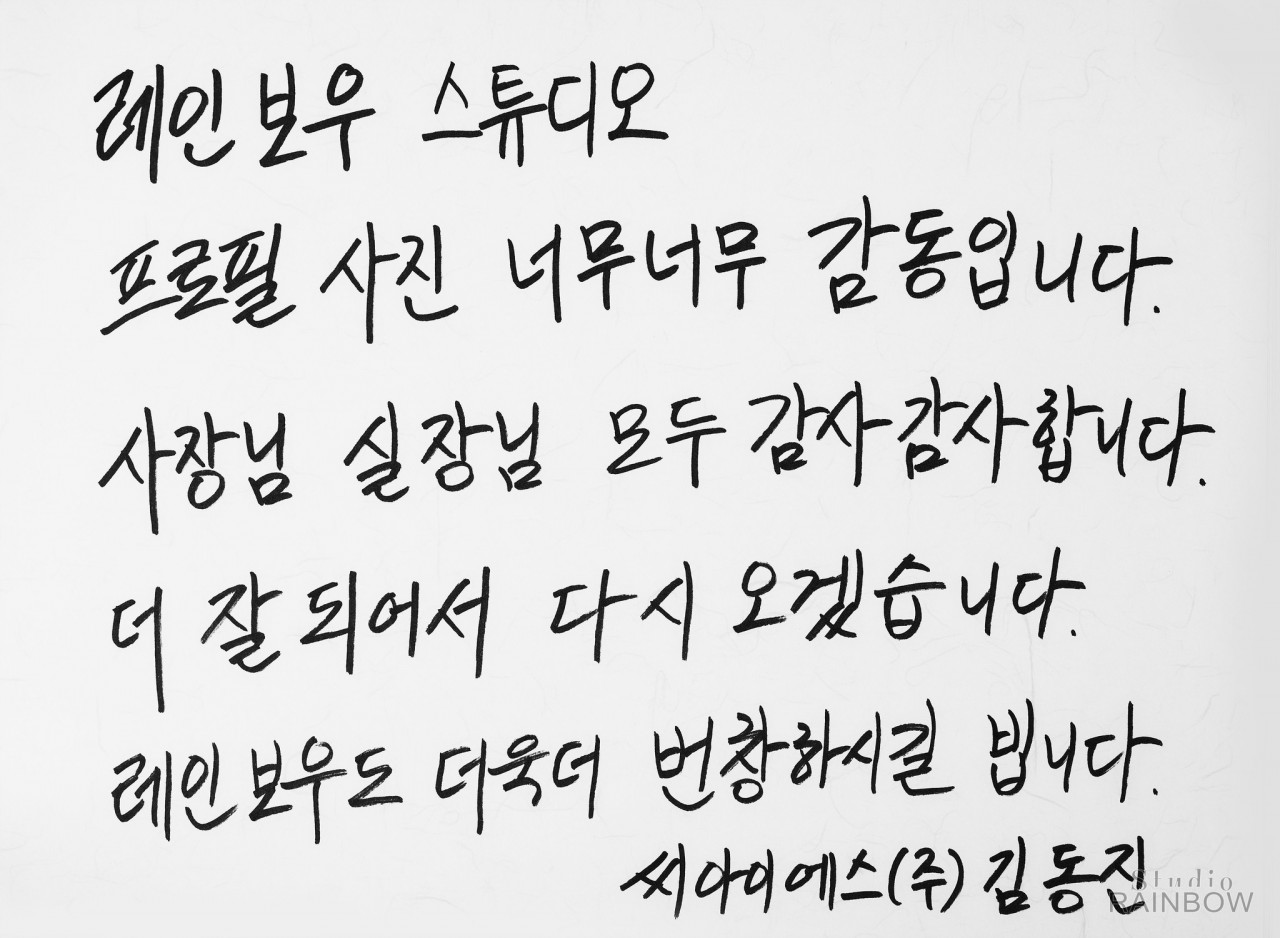 레인보우 스튜디오
프로필 사진 너무너무 감동입니다.
사장님 실장님 모두 감사감사합니다.
더 잘 되어서 다시 오겠습니다.
레인보우도 더욱더 번창하시길 빕니다.
씨아이에스(주) 김동진
Studio
RAINBOW